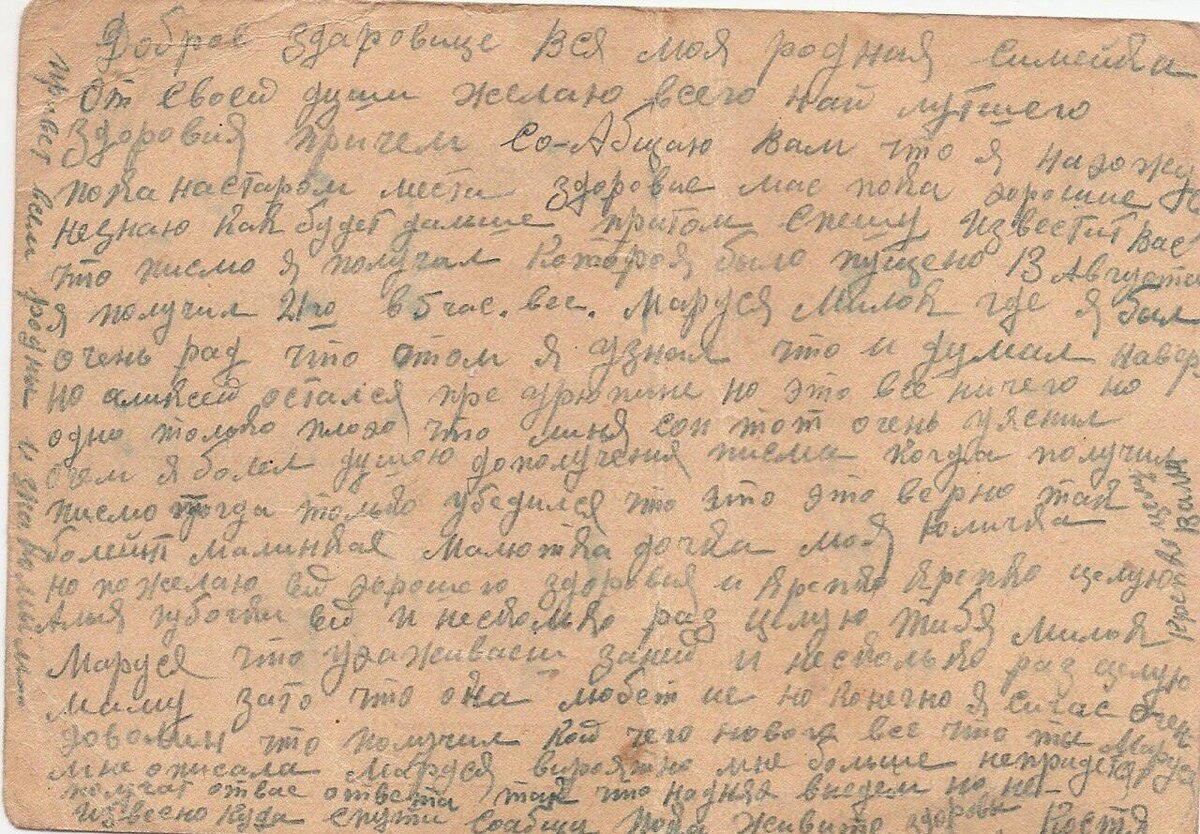 Доброе здаровице вся моя родная симейка
От своей души желаю всего най лутшего
здоровия причем Со-Абщаю Вам что я нахожу
пока настаром мести здоровие мае пока хорошие
незнаю как будет дальше притом спешу известит вас
что писмо я получил которая было пущено 13 Августа
я получил 21го в 5 час. веч. Маруся Милок где я был
очень рад что отом я узнал что и думал
но аликсей остался пре но это все ничего но
одно только плохо что миня сон тот очень уяснил
очем я болел душою дополучения писма когда получил
писмо тогда только убедился что это это верно так
болейт малинкая малютка дочка моя Юличка
но пожелаю ей хорошего здоровия и крепко крепко целую
губочки ей и несколько раз целую тибя милок
Маруся что ухаживаеш заней и несколько раз целую
маму зато что она любет ие но конечно я сичас очен
доволин что получил кой чего нового все что ты Маруся
мне описала Маруся вироятно мне больше непридется
получат отвас ответа так что наднях внедем но не-
извесно куда спути сообщу пока живите здоровы Костя
привет всем родным и знакомым
крепко целую Ваня